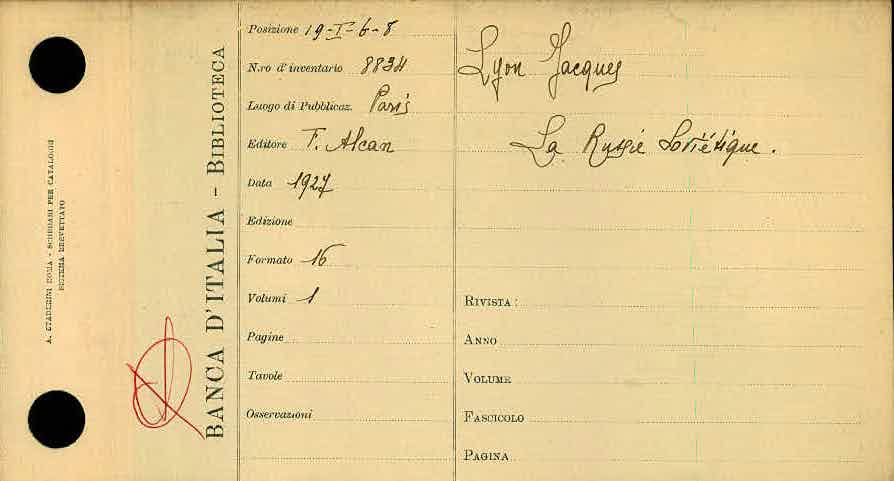 A. STADERINI ROMA - SCHEDARI PER CATALOGHI
SISTEMA BREVETTATO
BANCA D'ITALIA - BIBLIOTECA
Posizione 19-I-6-8
N.ro d'inventario 8834
Luogo di Pubblicaz. Paris
Editore F. Alcan
Data 1927
Edizione
Formato 16
Volumi 1
Pagine
Tavole
Osservazioni
Lyon Jacques
La Russie Soviétique.
RIVISTA:
ANNO
VOLUME
FASCICOLO
PAGINA